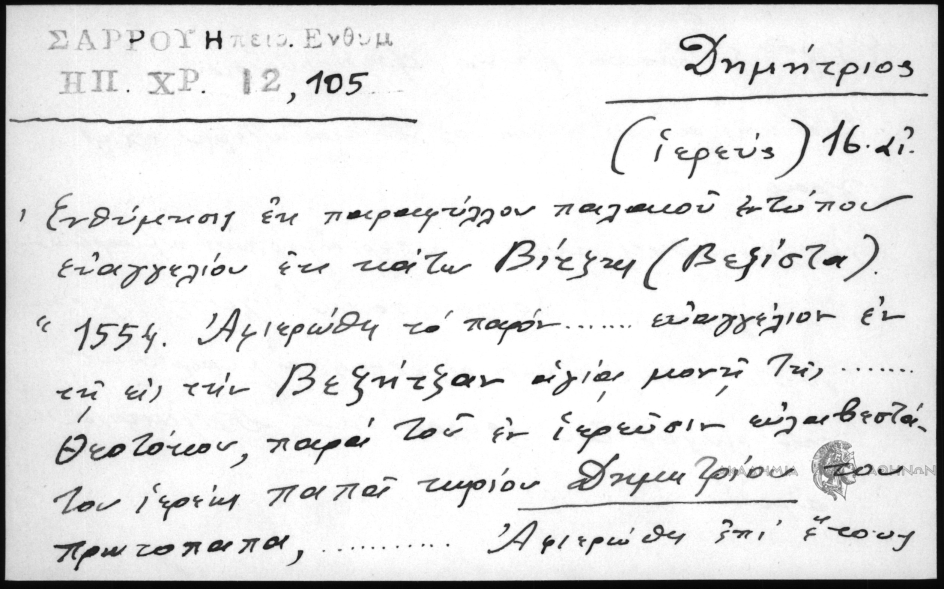 ΣΑΡΡΟΥ Ηπειρ. Ενθυμ
ΗΠ. ΧΡ. 12, 105
Δημήτριος
(ἱερεύς) 16. αἰ.
Ἐνθύμησις ἐκ παραφύλλου παλαιοῦ ἐντύπου
εὐαγγελίου ἐκ κάτω Βίτζης (Βεζίστα).
"1554. Ἀφιερώθη τό παρόν ...... εὐαγγέλιον ἐν
τῇ εἰς τήν Βεζήτζαν ἁγίᾳ μονῇ τῆς ......
Θεοτόκου, παρά τοῦ ἐν ἱερεῦσιν εὐλαβεστά-
του ἱερέως παπᾶ κυρίου Δημητρίου του
πρωτοπαπα, .......... Ἀφιερώθη ἐπί ἔτους
ΑΚΑΔΗΜΙΑ ΑΘΗΝΩΝ